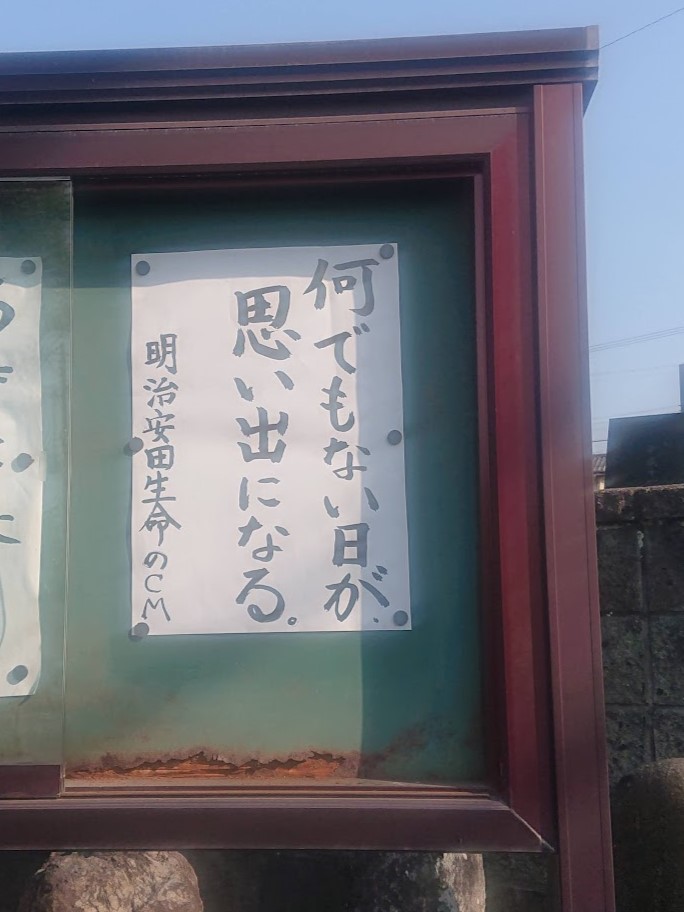 何でもない日が、
思い出になる。
明治安田生命のCM